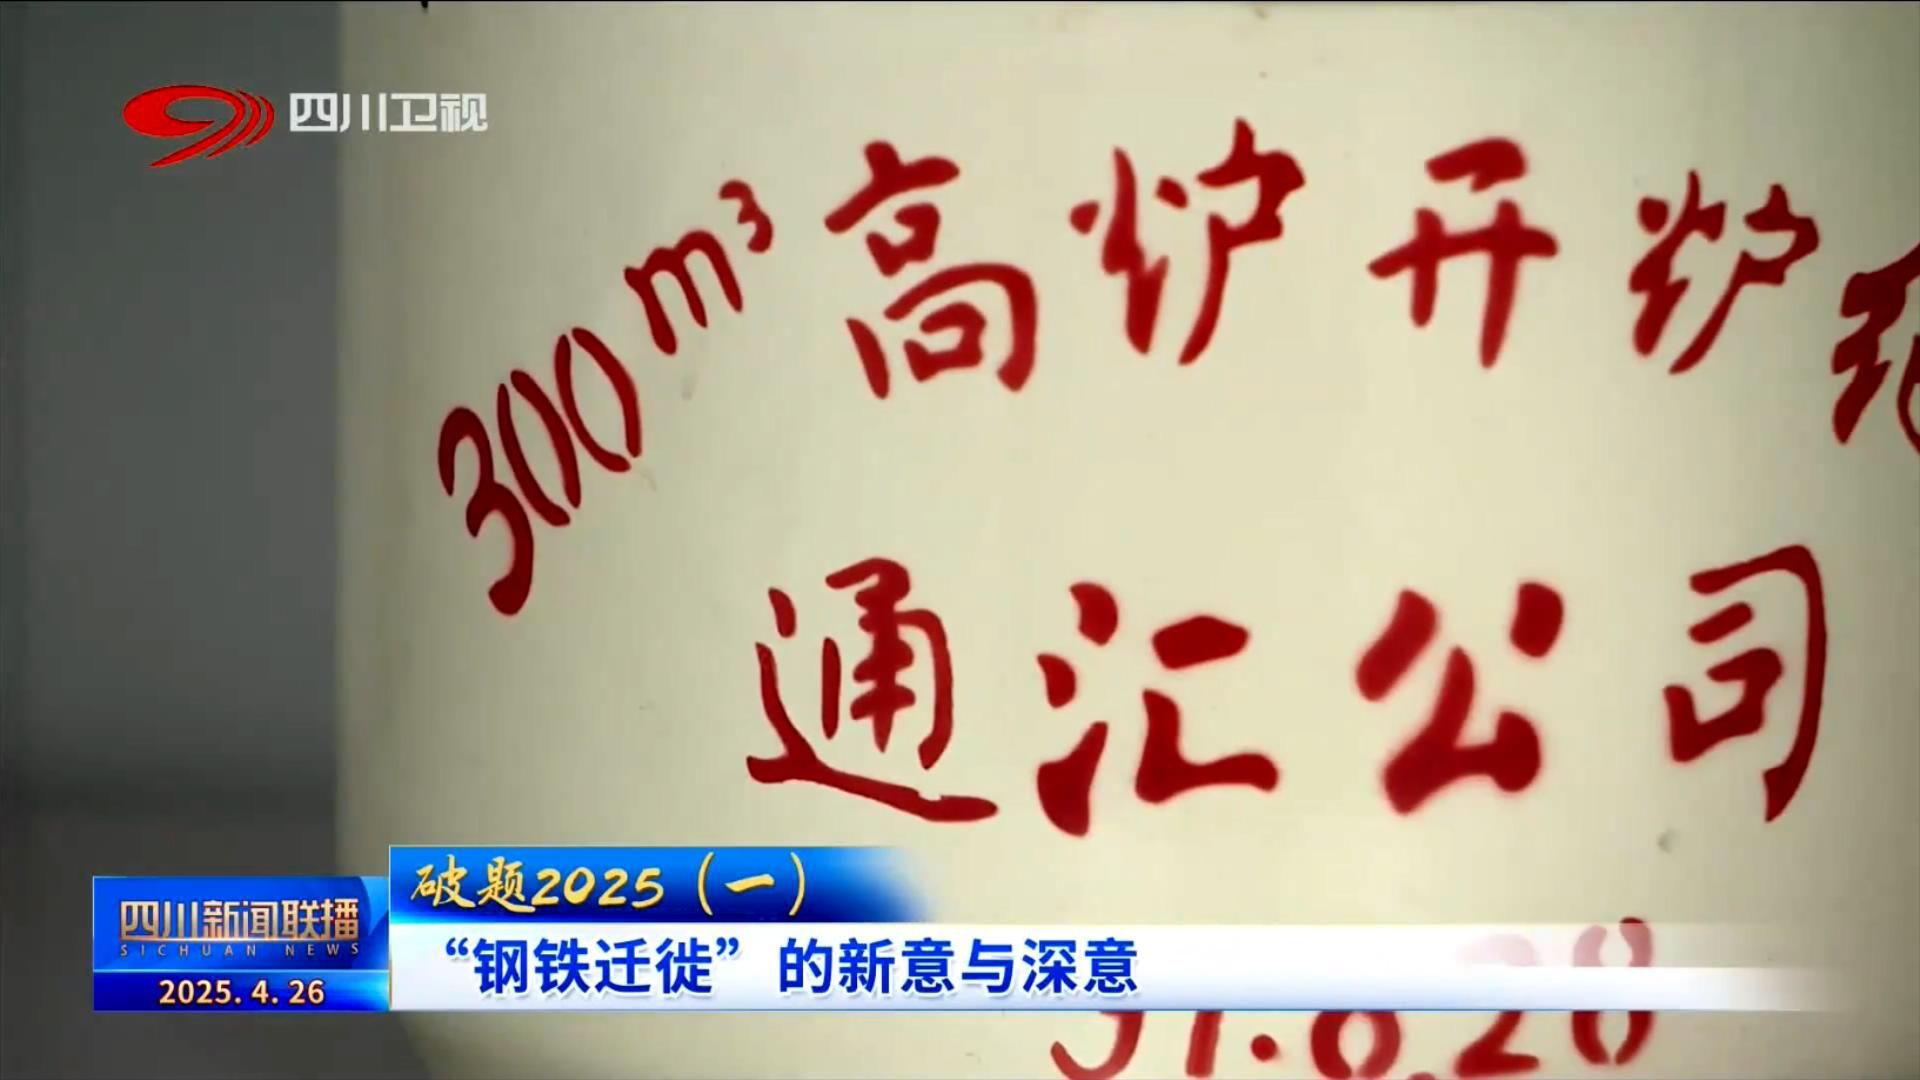 四川卫视
300m³高炉开炉
通汇公司
破题2025（一）
四川新闻联播
SICHUAN NEWS
“钢铁迁徙”的新意与深意
2025.4.26